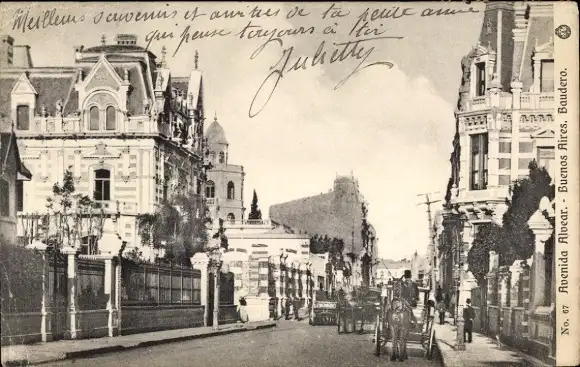 Meilleurs souvenirs et amitiés de ta petite amie
qui pense toujours à toi
Juliette
No. 67 Avenida Alvear. - Buenos Aires. Baudero.